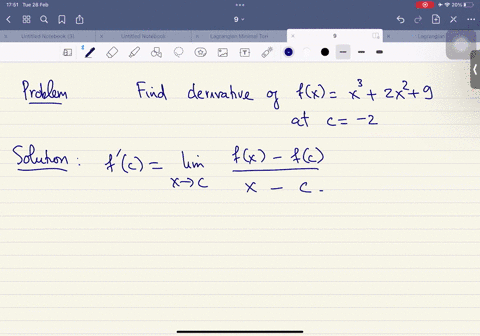 17:51 Tue 28 Feb
20%
9
Untitled Notebook (3)
Untitled Notebook
Lagrangian Minimal Tori
9
Problem Find derivative of f(x) = x³ + 2x² + 9
at c = -2
Solution : f'(c) = lim f(x) - f(c)
x→c x - c .